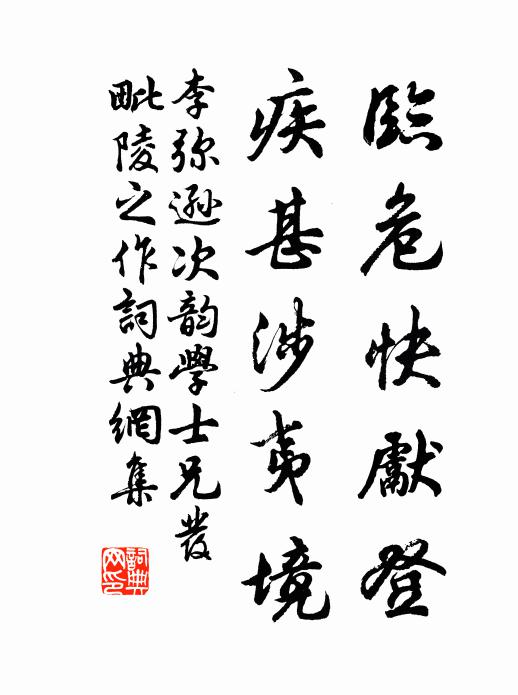 臨危快獻登
疾甚涉夷境
李弥遜次韵學士兄發
毗陵之作詞典網集
詞典網印